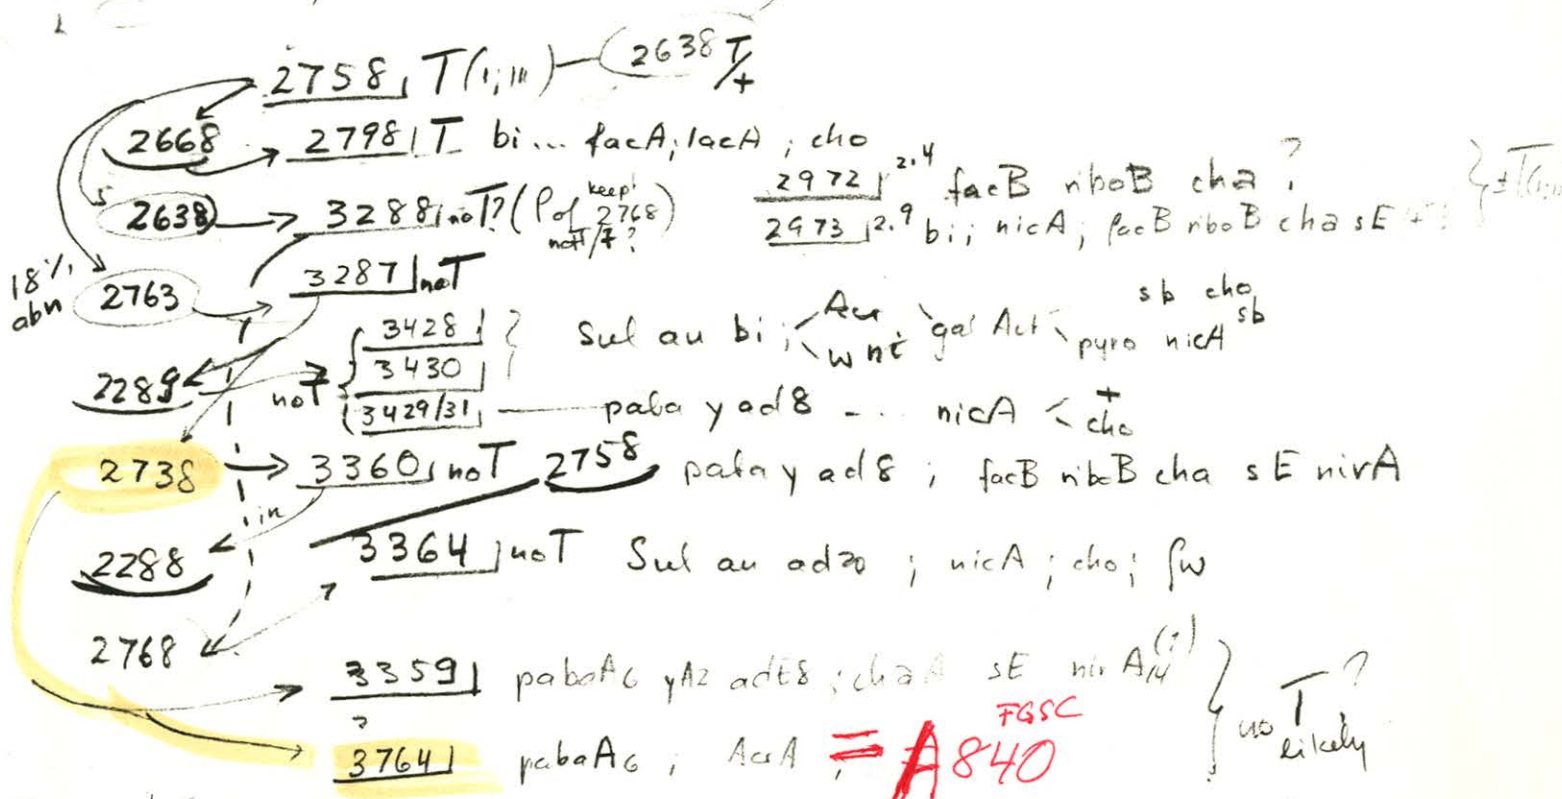 2758 T(I;III) — 2638 T/+
2668 → 2798 T bi... facA; lacA; cho
2972 2.4 facB riboB cha ?
2638 → 3288 noT? (P of 2768) keep! noT/ ?
2973 2.9 bi; nicA; facB riboB cha sE
18% abn 2763 → 3287 noT
2289 noT 3428
3430
Sul au bi; Acr w ni gal Act sb cho pyro nicA sb
3429/31 — paba y ad8 -.. nicA < + cho
2738 → 3360 noT 2758 paba y ad8 ; facB riboB cha sE nirA
in
2288 3364 noT Sul au ad20 ; nicA ; cho ; fw
2768
3359 pabaA6 yA2 adE8 ; chaA sE nirA14 (?)
?
3764 pabaA6 ; AcrA ; = A840 FGSC
no T likely ?